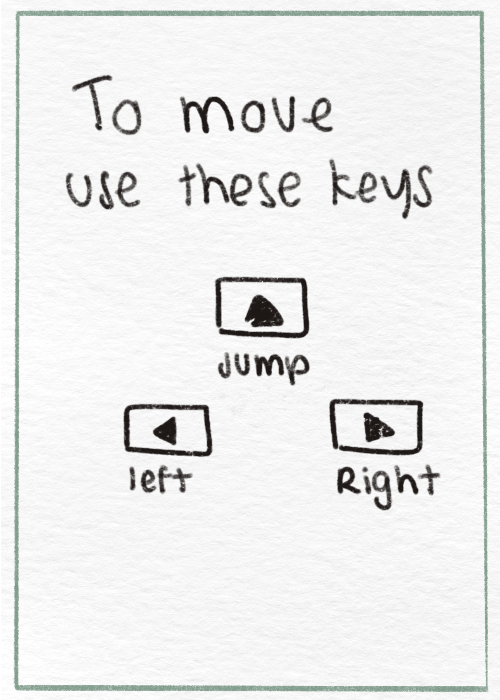 To move
use these keys
Jump
left
Right